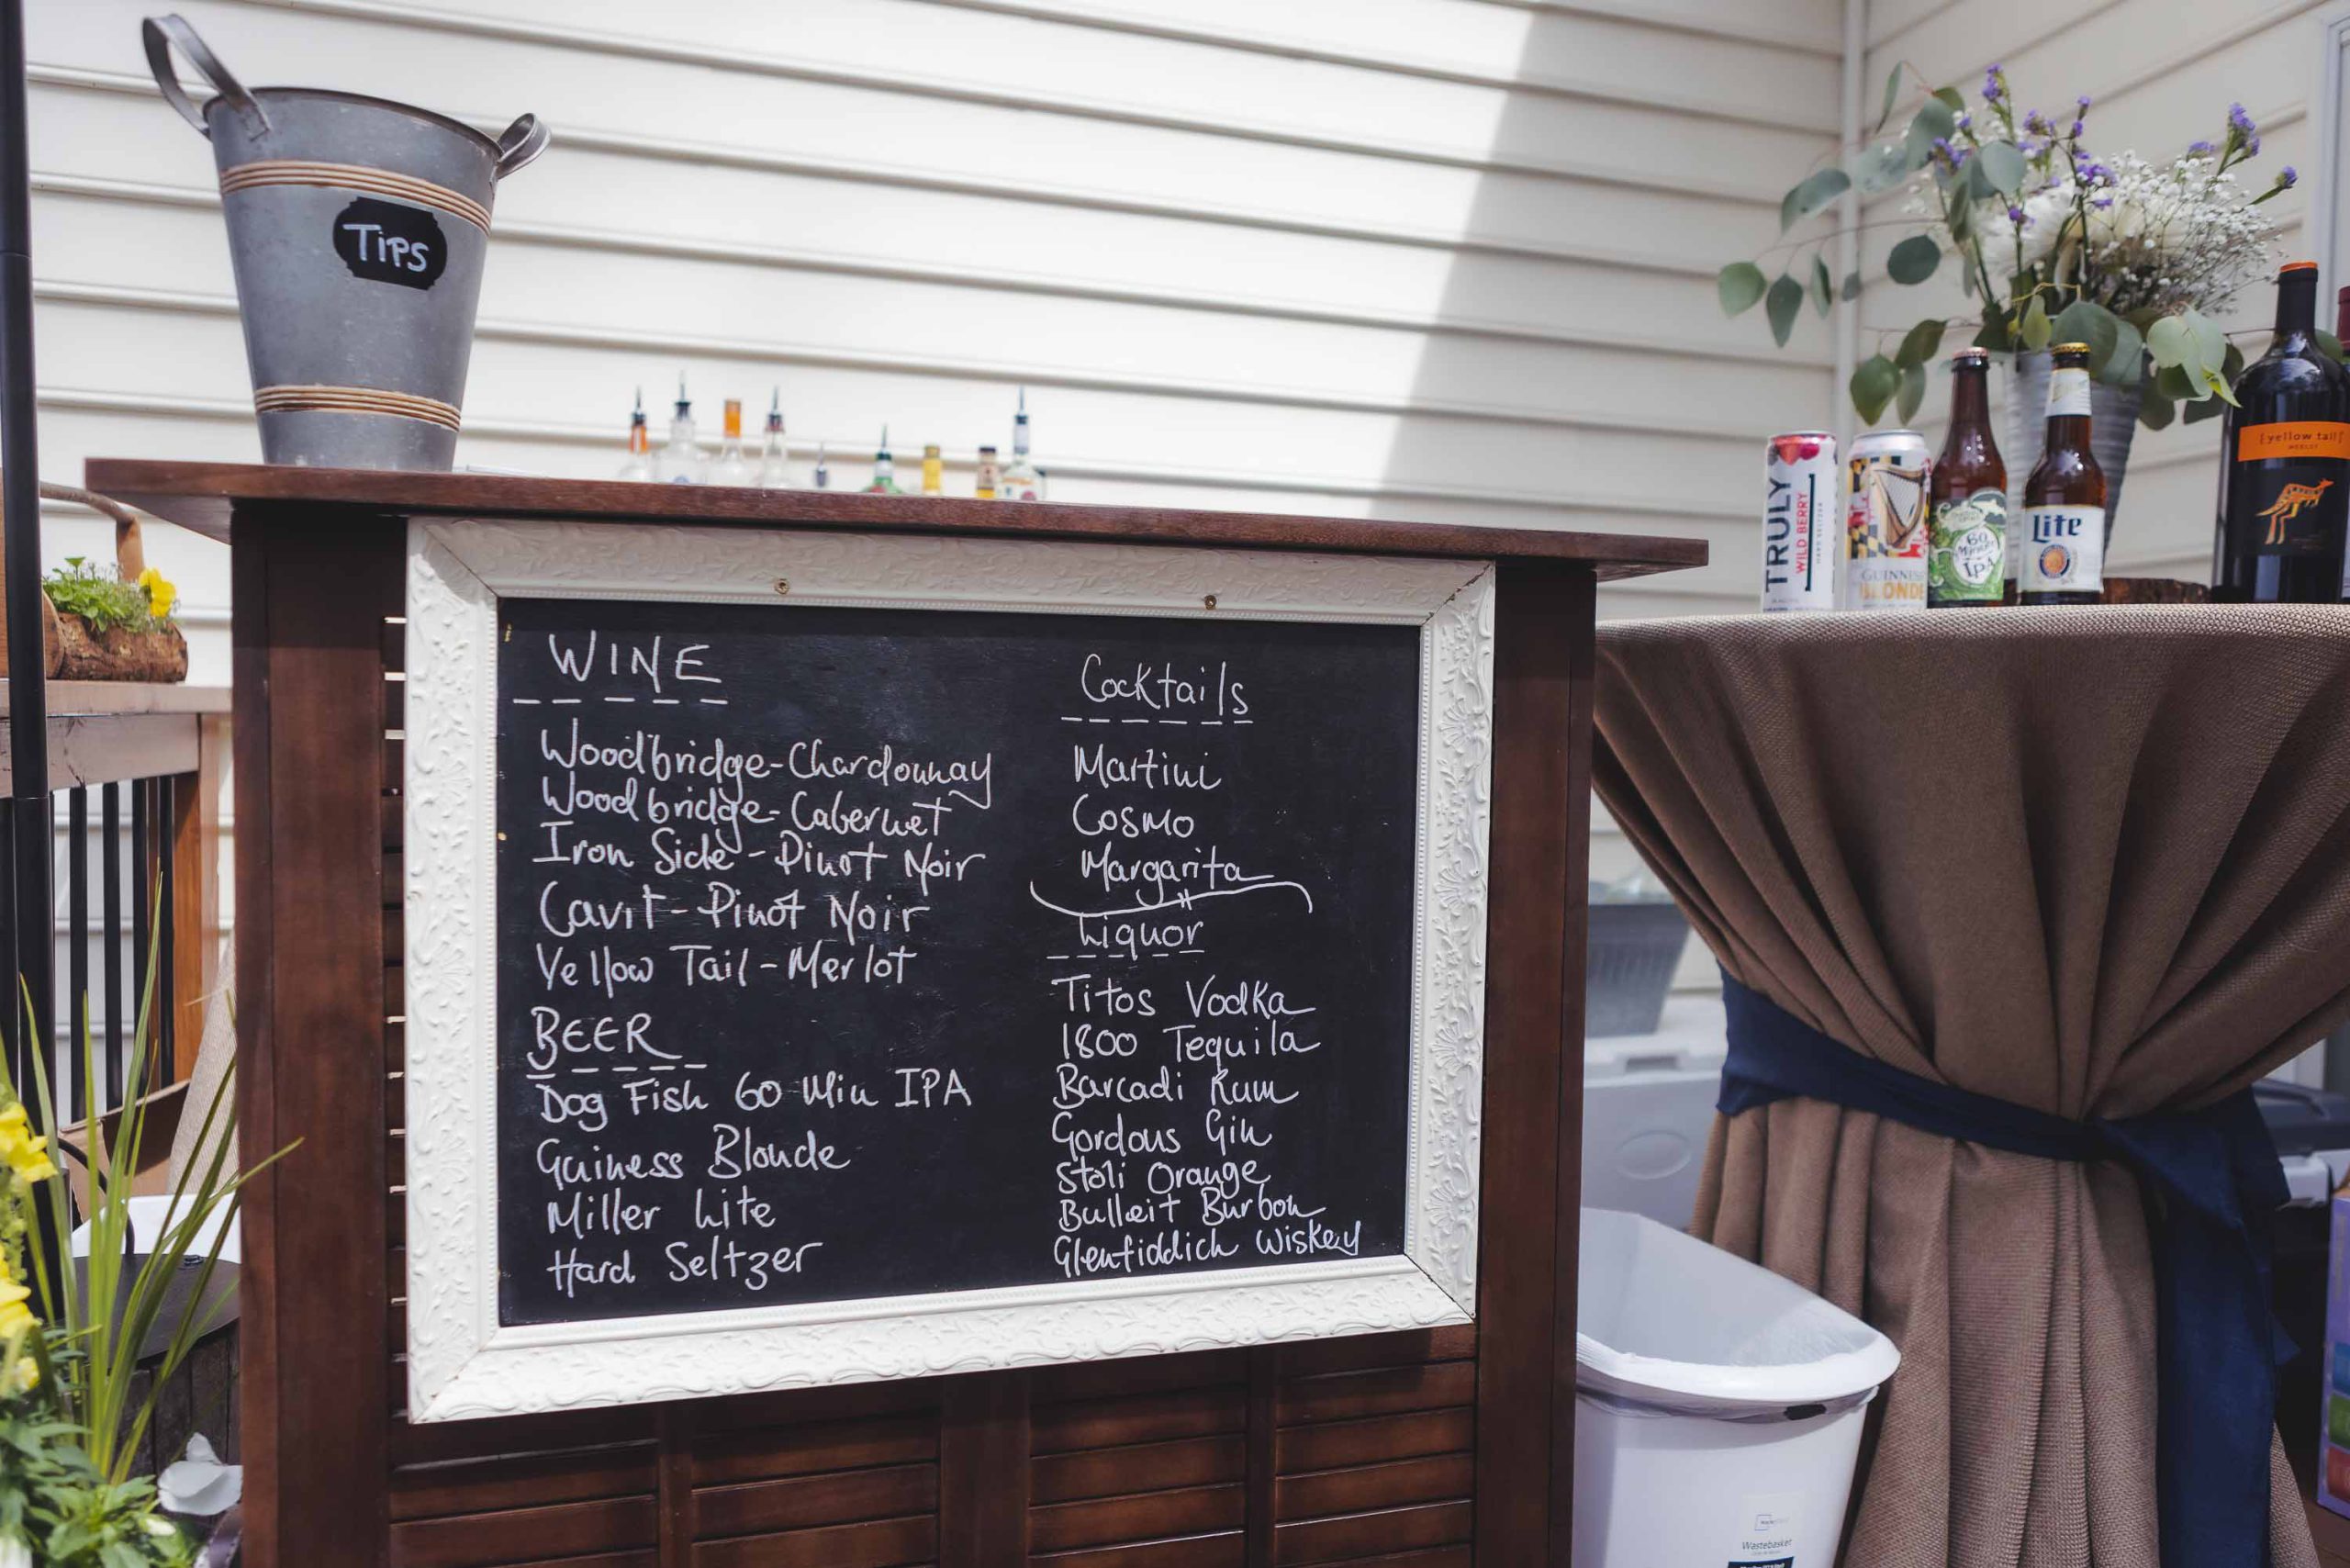 Tips
WINE
Woodbridge-Chardonnay
Woodbridge-Cabernet
Iron Side-Pinot Noir
Cavit-Pinot Noir
Yellow Tail-Merlot
BEER
Dog Fish 60 Min IPA
Guiness Blonde
Miller Lite
Hard Seltzer
Cocktails
Martini
Cosmo
Margarita
Liquor
Titos Vodka
1800 Tequila
Barcadi Rum
Gordons Gin
Stoli Orange
Bulleit Burbon
Glenfiddich Wiskey
TRULY
WILD BERRY
HARD SELTZER
GUINNESS
BLONDE
60
Minute
IPA
Lite
[yellow tail]
MERLOT
Wastebasket